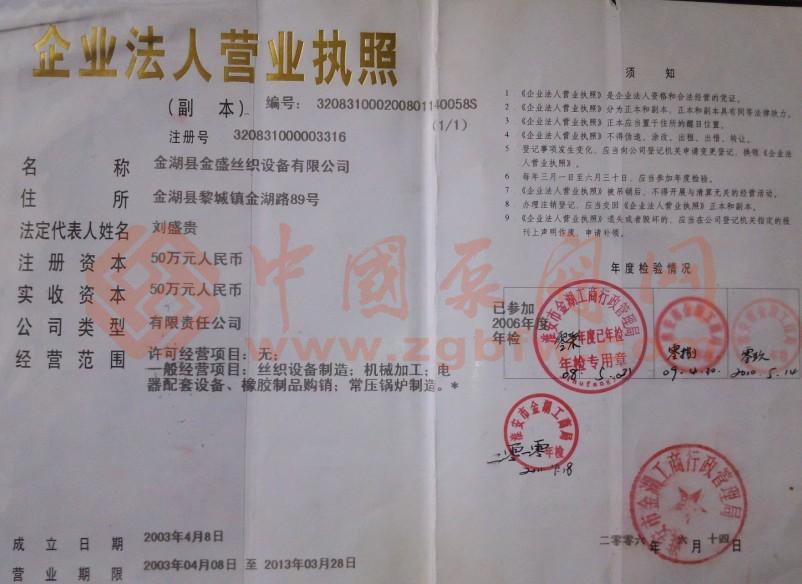 企业法人营业执照
(副 本) 编号: 320831000200801140058S
(1/1)
注册号 320831000003316
名 称 金湖县金盛丝织设备有限公司
住 所 金湖县黎城镇金湖路89号
法定代表人姓名 刘盛贵
注册资本 50万元人民币
实收资本 50万元人民币
公司类型 有限责任公司
经营范围 许可经营项目:无;
一般经营项目:丝织设备制造;机械加工;电
器配套设备、橡胶制品购销;常压锅炉制造。*
成立日期 2003年4月8日
营业期限 2003年04月08日 至 2013年03月28日
须 知
1 《企业法人营业执照》是企业法人资格和合法经营的凭证。
2 《企业法人营业执照》分为正本和副本,正本和副本具有同等法律效力。
3 《企业法人营业执照》正本应当置于住所的醒目位置。
4 《企业法人营业执照》不得伪造、涂改、出租、出借、转让。
5 登记事项发生变化,应当向公司登记机关申请变更登记,换领《企业法
人营业执照》。
6 每年三月一日至六月三十日,应当参加年度检验。
7 《企业法人营业执照》被吊销后,不得开展与清算无关的经营活动。
8 办理注销登记,应当交回《企业法人营业执照》正本和副本。
9 《企业法人营业执照》遗失或者毁坏的,应当在公司登记机关指定的报
刊上声明作废,申请补领。
年度检验情况
已参加
2006年度
年检
淮安市金湖工商行政管理局
年度已年检
年检专用章
08. 5. 21
09. 4. 20
零玖
2010. 5. 14
淮安市金湖工商局
年检
二零一零
淮安市金湖工商行政管理局
二零零六年 六月十四日
中國泵阀网
www.zgbfw.com